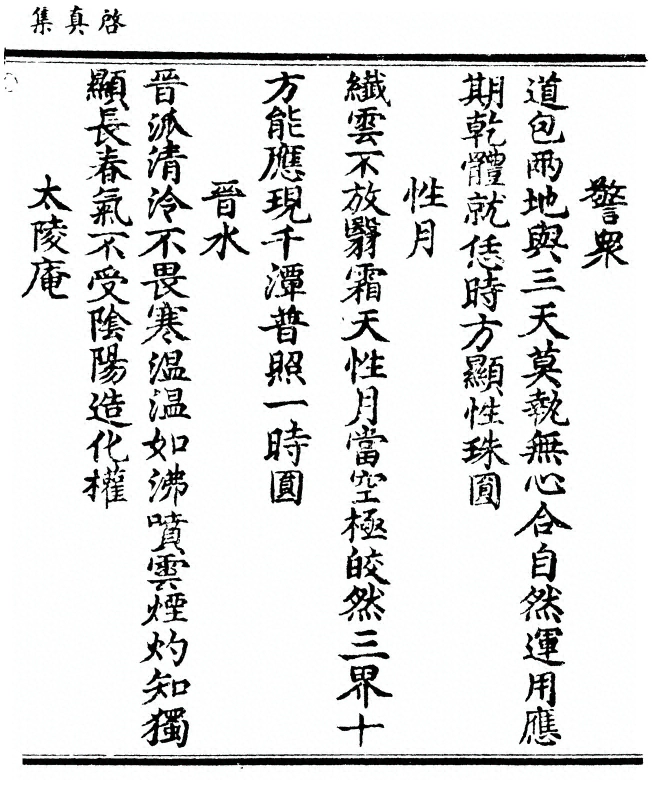 啓真集
警眾
道包兩地與三天莫執無心合自然運用應
期乾體就恁時方顯性珠圓
性月
纖雲不放翳霜天性月當空極皎然三界十
方能應現千潭普照一時圓
晉水
晉派清泠不畏寒温温如沸噴雲煙灼知獨
顯長春氣不受陰陽造化權
太陵庵